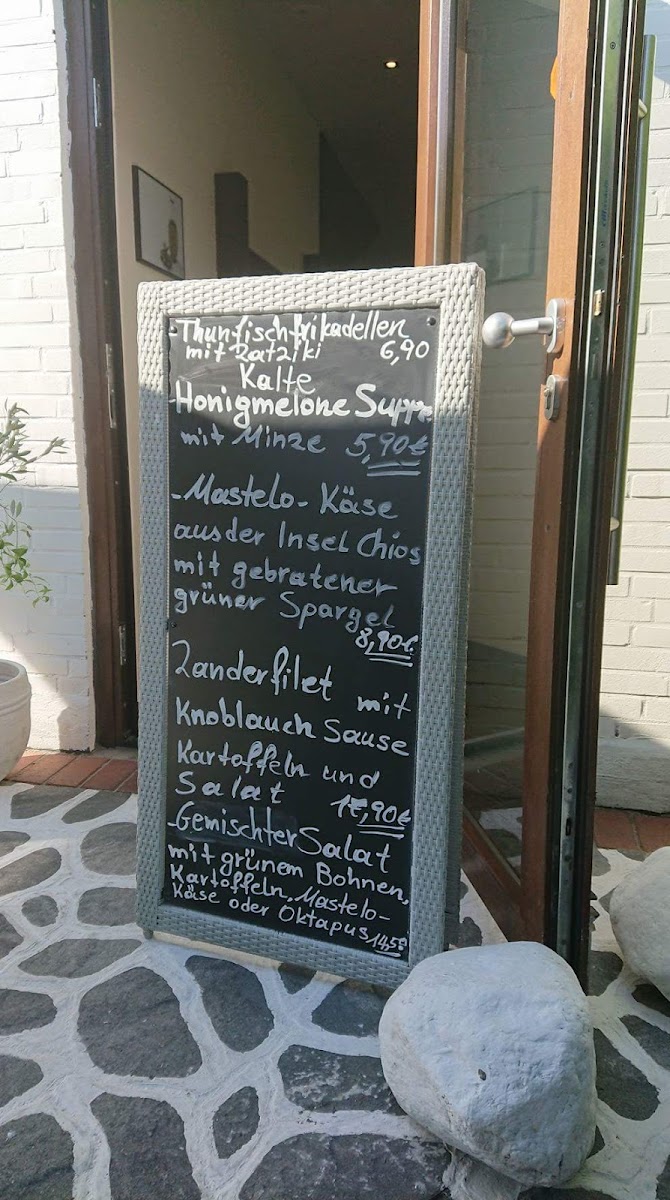 - Thunfischfrikadellen
mit Zatziki 6,90
Kalte
- Honigmelone Suppe
mit Minze 5,90€
- Mastelo - Käse
aus der Insel Chios
mit gebratener
grüner Spargel
8,90€
Zanderfilet mit
Knoblauch Sause
Kartoffeln und
Salat
- Gemischter Salat
mit grünem Bohnen,
Kartoffeln, Mastelo-
Käse oder Oktapus 14,50